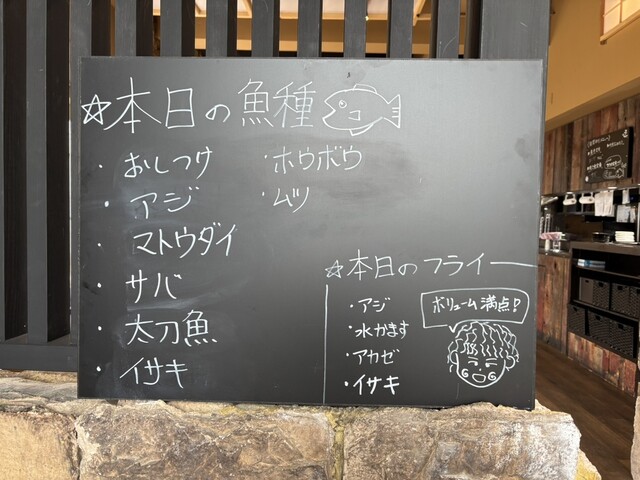 ☆本日の魚種
・おしつけ
・アジ
・マトウダイ
・サバ
・太刀魚
・イサキ
・ホウボウ
・ムツ
☆本日のフライ
・アジ
・水かます
・アカゼ
・イサキ
ボリューム満点！